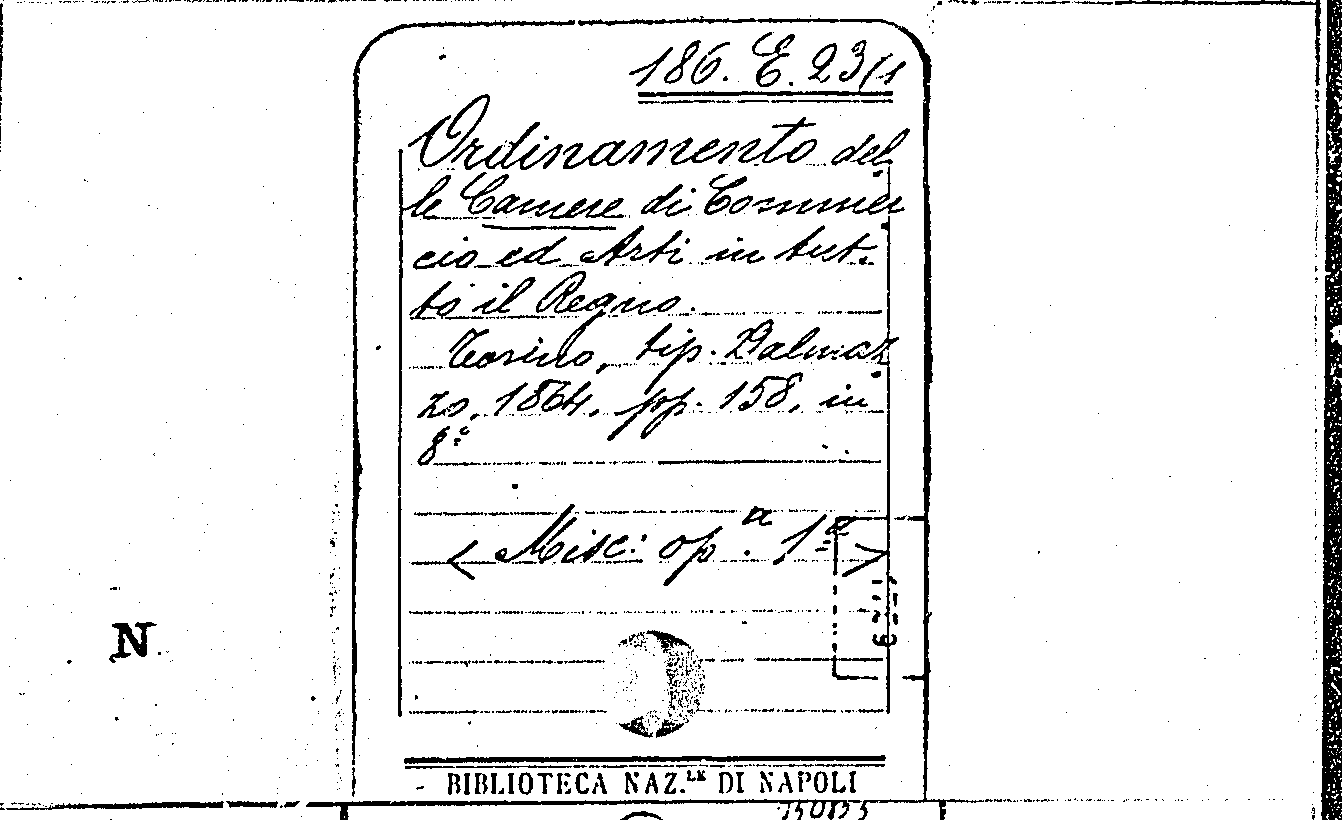 186. E. 23/1
Ordinamento del
le Camere di Commer
cio ed Arti in tut-
to il Regno.
Torino, tip. Dalmaz
zo, 1864, pp. 158, in
8º
< Misc: opª. 1ª >
N
BIBLIOTECA NAZ.LE DI NAPOLI